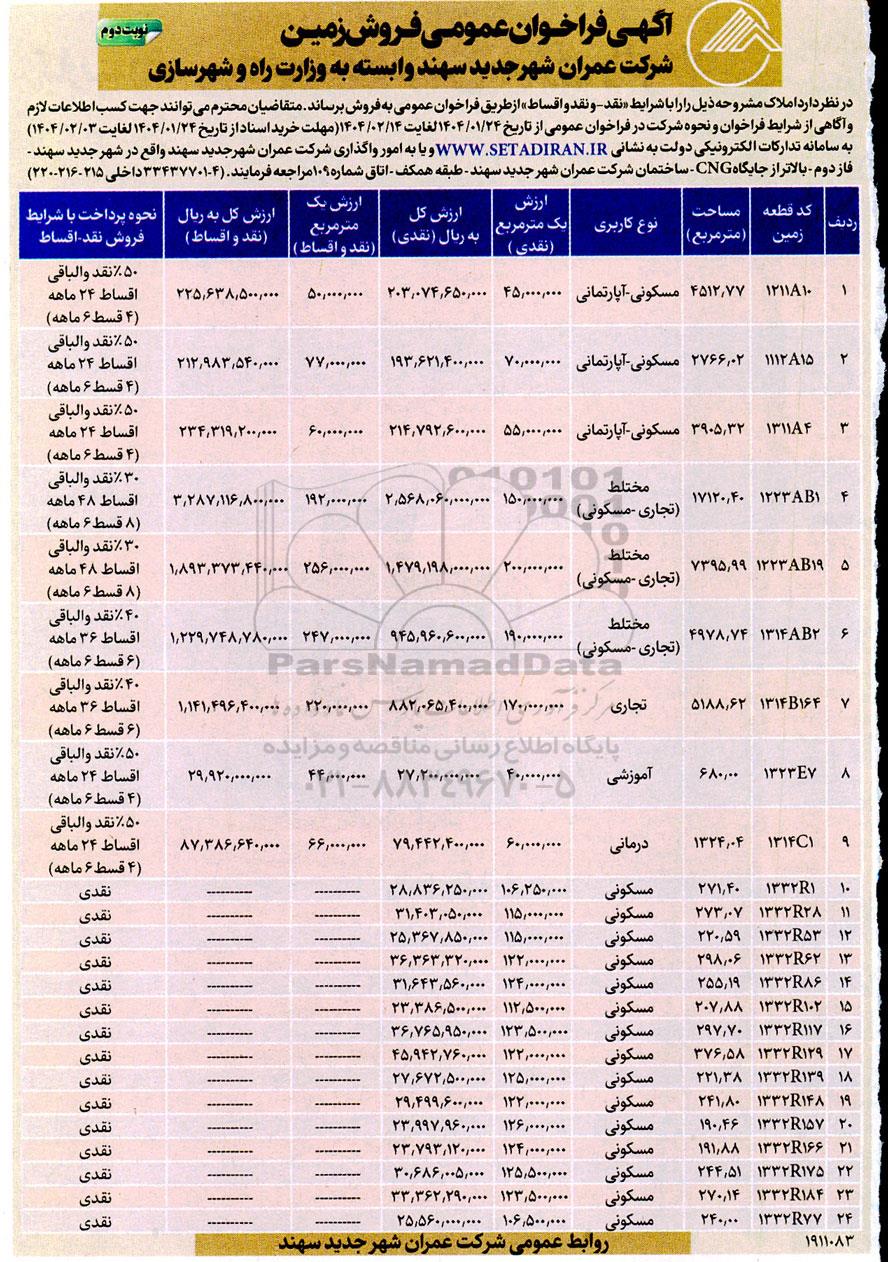 آگهی فراخوان عمومی فروش زمین
نوبت دوم
شرکت عمران شهر جدید سهند وابسته به وزارت راه و شهرسازی
در نظر دارد املاک مشروحه ذیل را با شرایط «نقد - و نقد و اقساط» از طریق فراخوان عمومی به فروش برساند. متقاضیان محترم می‌توانند جهت کسب اطلاعات لازم
و آگاهی از شرایط فراخوان و نحوه شرکت در فراخوان عمومی از تاریخ ۱۴۰۴/۰۱/۲۴ لغایت ۱۴۰۴/۰۲/۱۴ (مهلت خرید اسناد از تاریخ ۱۴۰۴/۰۱/۲۴ لغایت ۱۴۰۴/۰۲/۰۳)
به سامانه تدارکات الکترونیکی دولت به نشانی WWW.SETADIRAN.IR و یا به امور واگذاری شرکت عمران شهر جدید سهند واقع در شهر جدید سهند -
فاز دوم - بالاتر از جایگاه CNG - ساختمان شرکت عمران شهر جدید سهند - طبقه همکف - اتاق شماره ۱۰۹ مراجعه فرمایند. (۴-۳۳۴۳۷۷۰۱ داخلی ۲۱۵-۲۱۶-۲۲۰)
ردیف | کد قطعه زمین | مساحت (مترمربع) | نوع کاربری | ارزش یک مترمربع (نقدی) | ارزش کل به ریال (نقدی) | ارزش یک مترمربع (نقد و اقساط) | ارزش کل به ریال (نقد و اقساط) | نحوه پرداخت با شرایط فروش نقد-اقساط
۱ | ۱۲۱۱A۱۰ | ۴۵۱۲٫۷۷ | مسکونی-آپارتمانی | ۴۵,۰۰۰,۰۰۰ | ۲۰۳,۰۷۴,۶۵۰,۰۰۰ | ۵۰,۰۰۰,۰۰۰ | ۲۲۵,۶۳۸,۵۰۰,۰۰۰ | ۵۰٪ نقد والباقی اقساط ۲۴ ماهه (۴ قسط ۶ ماهه)
۲ | ۱۱۱۲A۱۵ | ۲۷۶۶٫۰۲ | مسکونی-آپارتمانی | ۷۰,۰۰۰,۰۰۰ | ۱۹۳,۶۲۱,۴۰۰,۰۰۰ | ۷۷,۰۰۰,۰۰۰ | ۲۱۲,۹۸۳,۵۴۰,۰۰۰ | ۵۰٪ نقد والباقی اقساط ۲۴ ماهه (۴ قسط ۶ ماهه)
۳ | ۱۳۱۱A۴ | ۳۹۰۵٫۳۲ | مسکونی-آپارتمانی | ۵۵,۰۰۰,۰۰۰ | ۲۱۴,۷۹۲,۶۰۰,۰۰۰ | ۶۰,۰۰۰,۰۰۰ | ۲۳۴,۳۱۹,۲۰۰,۰۰۰ | ۵۰٪ نقد والباقی اقساط ۲۴ ماهه (۴ قسط ۶ ماهه)
۴ | ۱۲۲۳AB۱ | ۱۷۱۲۰٫۴۰ | مختلط (تجاری-مسکونی) | ۱۵۰,۰۰۰,۰۰۰ | ۲,۵۶۸,۰۶۰,۰۰۰,۰۰۰ | ۱۹۲,۰۰۰,۰۰۰ | ۳,۲۸۷,۱۱۶,۸۰۰,۰۰۰ | ۳۰٪ نقد والباقی اقساط ۴۸ ماهه (۸ قسط ۶ ماهه)
۵ | ۱۲۲۳AB۱۹ | ۷۳۹۵٫۹۹ | مختلط (تجاری-مسکونی) | ۲۰۰,۰۰۰,۰۰۰ | ۱,۴۷۹,۱۹۸,۰۰۰,۰۰۰ | ۲۵۶,۰۰۰,۰۰۰ | ۱,۸۹۳,۳۷۳,۴۴۰,۰۰۰ | ۳۰٪ نقد والباقی اقساط ۴۸ ماهه (۸ قسط ۶ ماهه)
۶ | ۱۳۱۴AB۲ | ۴۹۷۸٫۷۴ | مختلط (تجاری-مسکونی) | ۱۹۰,۰۰۰,۰۰۰ | ۹۴۵,۹۶۰,۶۰۰,۰۰۰ | ۲۴۷,۰۰۰,۰۰۰ | ۱,۲۲۹,۷۴۸,۷۸۰,۰۰۰ | ۴۰٪ نقد والباقی اقساط ۳۶ ماهه (۶ قسط ۶ ماهه)
۷ | ۱۳۱۴B۱۶۴ | ۵۱۸۸٫۶۲ | تجاری | ۱۷۰,۰۰۰,۰۰۰ | ۸۸۲,۰۶۵,۴۰۰,۰۰۰ | ۲۲۰,۰۰۰,۰۰۰ | ۱,۱۴۱,۴۹۶,۴۰۰,۰۰۰ | ۴۰٪ نقد والباقی اقساط ۳۶ ماهه (۶ قسط ۶ ماهه)
۸ | ۱۳۲۳E۷ | ۶۸۰٫۰۰ | آموزشی | ۴۰,۰۰۰,۰۰۰ | ۲۷,۲۰۰,۰۰۰,۰۰۰ | ۴۴,۰۰۰,۰۰۰ | ۲۹,۹۲۰,۰۰۰,۰۰۰ | ۵۰٪ نقد والباقی اقساط ۲۴ ماهه (۴ قسط ۶ ماهه)
۹ | ۱۳۱۴C۱ | ۱۳۲۴٫۰۴ | درمانی | ۶۰,۰۰۰,۰۰۰ | ۷۹,۴۴۲,۴۰۰,۰۰۰ | ۶۶,۰۰۰,۰۰۰ | ۸۷,۳۸۶,۶۴۰,۰۰۰ | ۵۰٪ نقد والباقی اقساط ۲۴ ماهه (۴ قسط ۶ ماهه)
۱۰ | ۱۳۳۲R۱ | ۲۷۱٫۴۰ | مسکونی | ۱۰۶,۲۵۰,۰۰۰ | ۲۸,۸۳۶,۲۵۰,۰۰۰ | ---------- | ---------- | نقدی
۱۱ | ۱۳۳۲R۲۸ | ۲۷۳٫۰۷ | مسکونی | ۱۱۵,۰۰۰,۰۰۰ | ۳۱,۴۰۳,۰۵۰,۰۰۰ | ---------- | ---------- | نقدی
۱۲ | ۱۳۳۲R۵۳ | ۲۲۰٫۵۹ | مسکونی | ۱۱۵,۰۰۰,۰۰۰ | ۲۵,۳۶۷,۸۵۰,۰۰۰ | ---------- | ---------- | نقدی
۱۳ | ۱۳۳۲R۶۲ | ۲۹۸٫۰۶ | مسکونی | ۱۲۲,۰۰۰,۰۰۰ | ۳۶,۳۶۳,۳۲۰,۰۰۰ | ---------- | ---------- | نقدی
۱۴ | ۱۳۳۲R۸۶ | ۲۵۵٫۱۹ | مسکونی | ۱۲۴,۰۰۰,۰۰۰ | ۳۱,۶۴۳,۵۶۰,۰۰۰ | ---------- | ---------- | نقدی
۱۵ | ۱۳۳۲R۱۰۲ | ۲۰۷٫۸۸ | مسکونی | ۱۱۲,۵۰۰,۰۰۰ | ۲۳,۳۸۶,۵۰۰,۰۰۰ | ---------- | ---------- | نقدی
۱۶ | ۱۳۳۲R۱۱۷ | ۲۹۷٫۷۰ | مسکونی | ۱۲۳,۵۰۰,۰۰۰ | ۳۶,۷۶۵,۹۵۰,۰۰۰ | ---------- | ---------- | نقدی
۱۷ | ۱۳۳۲R۱۲۹ | ۳۷۶٫۵۸ | مسکونی | ۱۲۲,۰۰۰,۰۰۰ | ۴۵,۹۴۲,۷۶۰,۰۰۰ | ---------- | ---------- | نقدی
۱۸ | ۱۳۳۲R۱۳۹ | ۲۲۱٫۳۸ | مسکونی | ۱۲۵,۰۰۰,۰۰۰ | ۲۷,۶۷۲,۵۰۰,۰۰۰ | ---------- | ---------- | نقدی
۱۹ | ۱۳۳۲R۱۴۸ | ۲۴۱٫۸۰ | مسکونی | ۱۲۲,۰۰۰,۰۰۰ | ۲۹,۴۹۹,۶۰۰,۰۰۰ | ---------- | ---------- | نقدی
۲۰ | ۱۳۳۲R۱۵۷ | ۱۹۰٫۴۶ | مسکونی | ۱۲۶,۰۰۰,۰۰۰ | ۲۳,۹۹۷,۹۶۰,۰۰۰ | ---------- | ---------- | نقدی
۲۱ | ۱۳۳۲R۱۶۶ | ۱۹۱٫۸۸ | مسکونی | ۱۲۴,۰۰۰,۰۰۰ | ۲۳,۷۹۳,۱۲۰,۰۰۰ | ---------- | ---------- | نقدی
۲۲ | ۱۳۳۲R۱۷۵ | ۲۴۴٫۵۱ | مسکونی | ۱۲۵,۵۰۰,۰۰۰ | ۳۰,۶۸۶,۰۰۵,۰۰۰ | ---------- | ---------- | نقدی
۲۳ | ۱۳۳۲R۱۸۴ | ۲۷۰٫۱۴ | مسکونی | ۱۲۳,۵۰۰,۰۰۰ | ۳۳,۳۶۲,۲۹۰,۰۰۰ | ---------- | ---------- | نقدی
۲۴ | ۱۳۳۲R۷۷ | ۲۴۰٫۰۰ | مسکونی | ۱۰۶,۵۰۰,۰۰۰ | ۲۵,۵۶۰,۰۰۰,۰۰۰ | ---------- | ---------- | نقدی
ParsNamadData
پایگاه اطلاع رسانی مناقصه و مزایده
۰۲۱-۸۸۳۴۹۶۷۰-۵
۱۹۱۱۰۸۳
روابط عمومی شرکت عمران شهر جدید سهند